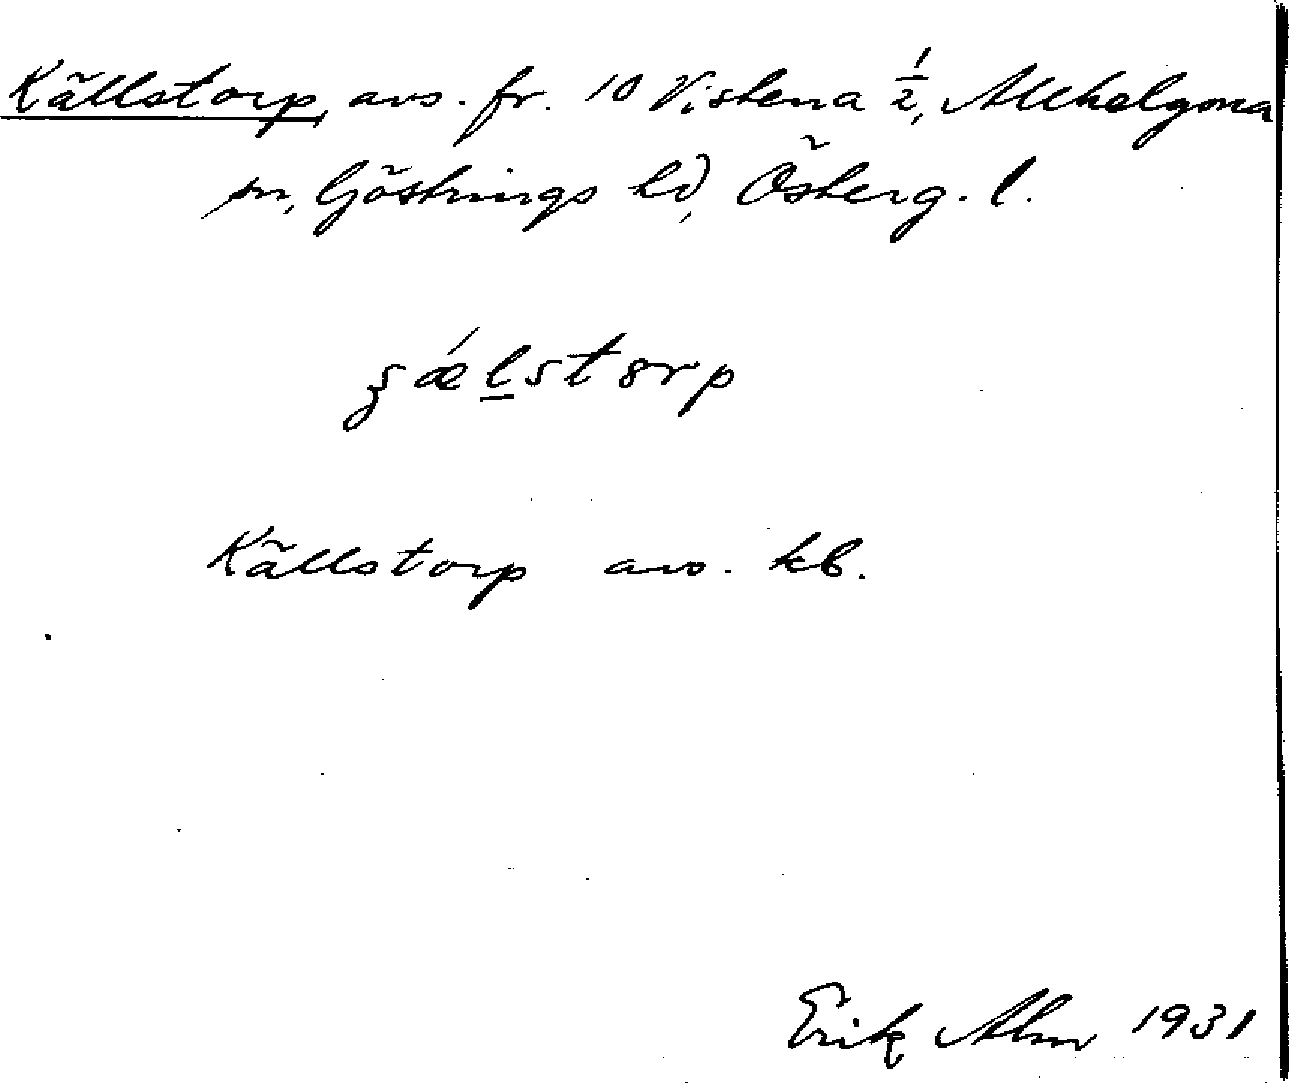 Källstorp, avs. fr. 10 Vistena 1/2, Allhelgona
sn, Göstrings hd, Österg. l.
ʂǽl̲stȣrp
Källstorp avs. kb.
Erik Alm 1931